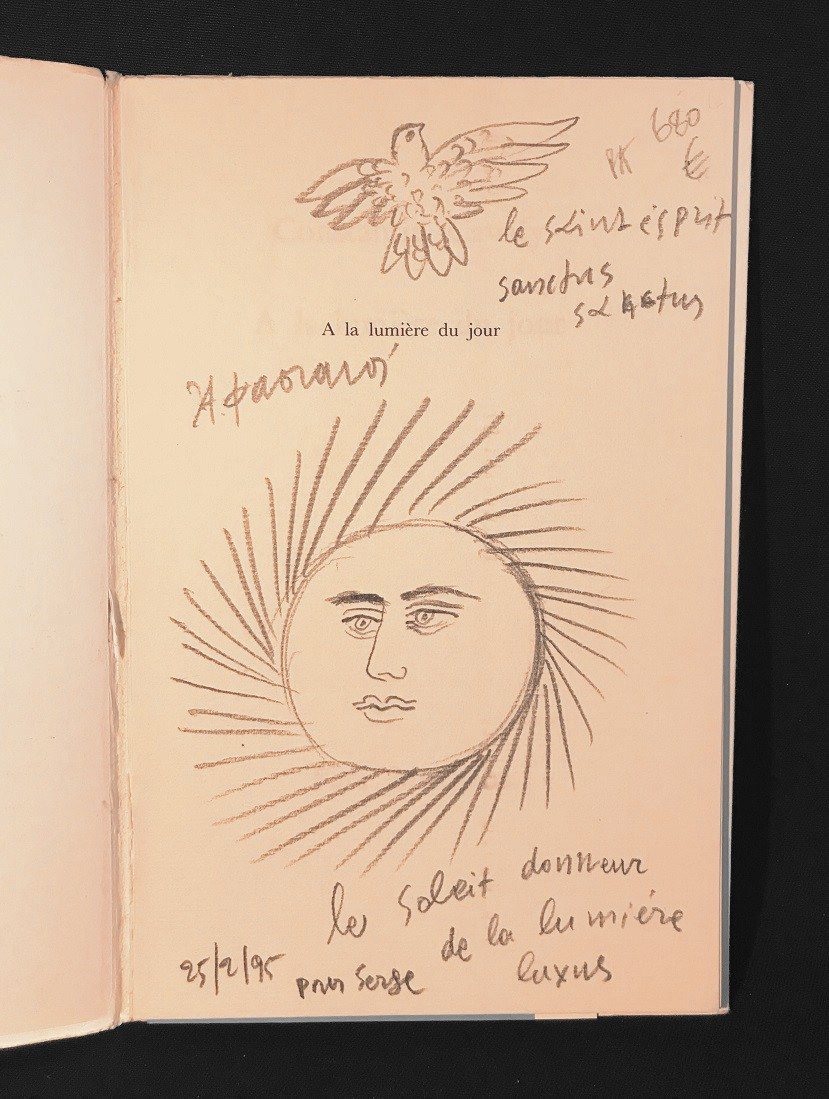 680
PK €
le saint ésprit
sanctus
sanctus
A la lumière du jour
Α. Φασιανός
le Soleit donneur
de la lumiére
luxus
25/2/95 pour Serge